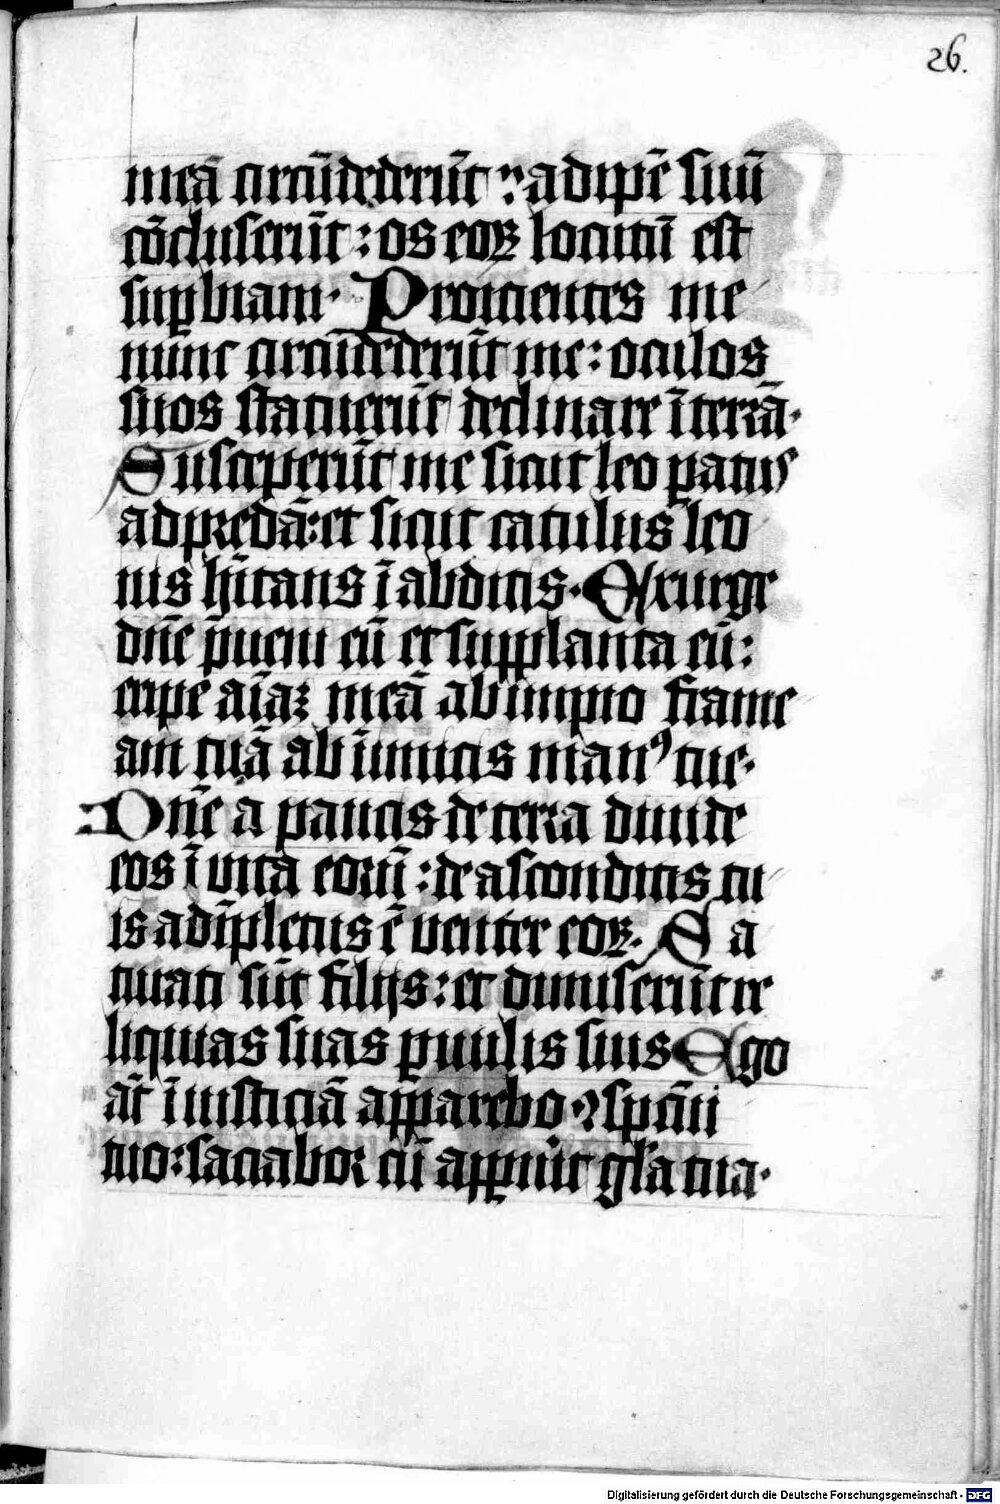 26.
meā circūdederūt : adipē suū
cōcluserūt : os eoꝝ locutū est
suꝑbiam · Proicientes me
nūnc circūdederūt me : oculos
suos statuerūt declinare ī terrā ·
Susceperūt me sicut leo paratus
ad predā : et sicut catulus leo
nis hītans ī abditis · Exurge
dn̄e p̄ueni eū et supplanta eū :
eripe aīaꝫ meā ab impio frame
am tuā ab īimicis manꝰ tue ·
Dn̄e a paucis de terra diuide
eos ī vita eorū : de absconditis tu
is adīpletus ē venter eoꝝ · Sa
turati sūt filijs : et dimiserūt re
liquias suas ꝑuulis suis Ego
at̄ ī iusticia apparebo ꝯspc̄ui
tuo : saciabor cū appuīt gl̄a tua ·
Digitalisierung gefördert durch die Deutsche Forschungsgemeinschaft - DFG